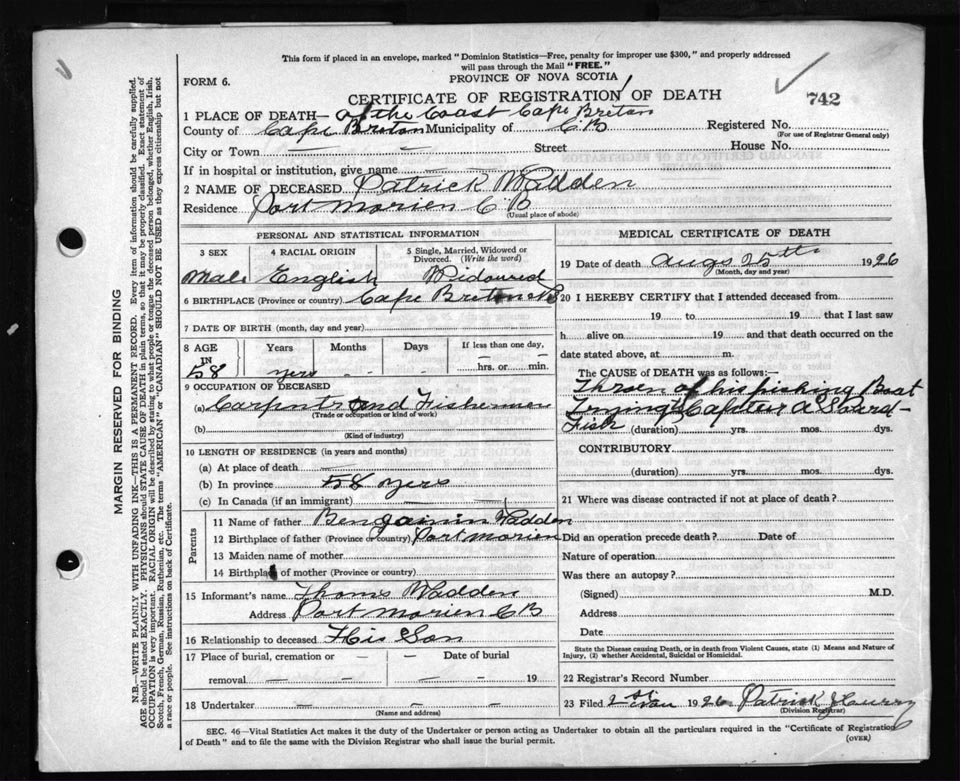 This form if placed in an envelope, marked "Dominion Statistics—Free, penalty for improper use $300," and properly addressed
will pass through the Mail "FREE."
FORM 6.
PROVINCE OF NOVA SCOTIA
CERTIFICATE OF REGISTRATION OF DEATH
742
1 PLACE OF DEATH— of the Coast Cape Breton
County of Cape Breton Municipality of C B Registered No.
(For use of Registrar General only)
City or Town — — Street House No.
If in hospital or institution, give name — —
2 NAME OF DECEASED Patrick Wadden
Residence Port Morien C B
(Usual place of abode)
PERSONAL AND STATISTICAL INFORMATION
3 SEX 4 RACIAL ORIGIN 5 Single, Married, Widowed or Divorced. (Write the word)
Male English Widowed
6 BIRTHPLACE (Province or country) Cape Breton NS
7 DATE OF BIRTH (month, day and year)
8 AGE IN Years Months Days If less than one day,
58 yers - - hrs. or min.
9 OCCUPATION OF DECEASED
(a) Carpenter and Fishermen
(Trade or occupation or kind of work)
(b)
(Kind of industry)
10 LENGTH OF RESIDENCE (in years and months)
(a) At place of death —
(b) In province 58 yers
(c) In Canada (if an immigrant) — —
Parents
11 Name of father Bengamin Wadden
12 Birthplace of father (Province or country) Port Morien
13 Maiden name of mother
14 Birthplace of mother (Province or country)
15 Informant's name Thoms Wadden
Address Port Morien C B
16 Relationship to deceased His Son
17 Place of burial, cremation or — — Date of burial
removal — — — — 19
18 Undertaker — — —
(Name and address)
MEDICAL CERTIFICATE OF DEATH
19 Date of death Augs 25th 1926
(Month, day and year)
20 I HEREBY CERTIFY that I attended deceased from
19 to 19 that I last saw
h alive on 19 and that death occurred on the
date stated above, at m.
The CAUSE OF DEATH was as follows:—
Throen of his fishing Boat
Trying to Capteur A Soard-
Fish (duration) yrs. mos. dys.
CONTRIBUTORY.
(duration) yrs. mos. dys.
21 Where was disease contracted if not at place of death?
Did an operation precede death? Date of
Nature of operation
Was there an autopsy?
(Signed) M.D.
Address
Date
State the Disease causing Death, or in death from Violent Causes, state (1) Means and Nature of
Injury, (2) whether Accidental, Suicidal or Homicidal.
22 Registrar's Record Number
23 Filed 1926 Patrick
(Division Registrar)
SEC. 46—Vital Statistics Act makes it the duty of the Undertaker or person acting as Undertaker to obtain all the particulars required in the "Certificate of Registration
of Death" and to file the same with the Division Registrar who shall issue the burial permit.
(OVER)
MARGIN RESERVED FOR BINDING
N.B.—WRITE PLAINLY WITH UNFADING INK—THIS IS A PERMANENT RECORD. Every item of information should be carefully supplied.
AGE should be stated EXACTLY. PHYSICIANS should STATE CAUSE OF DEATH in plain terms, so that it may be properly classified. Exact statement of
OCCUPATION is very important. RACIAL ORIGIN will be described by stating to what people or tongue the deceased person belonged, whether English, Irish,
Scotch, French, German, Russian, Ruthenian, etc. The terms "AMERICAN" or "CANADIAN" SHOULD NOT BE USED as they express citizenship but not
a race or people. See instructions on back of Certificate.